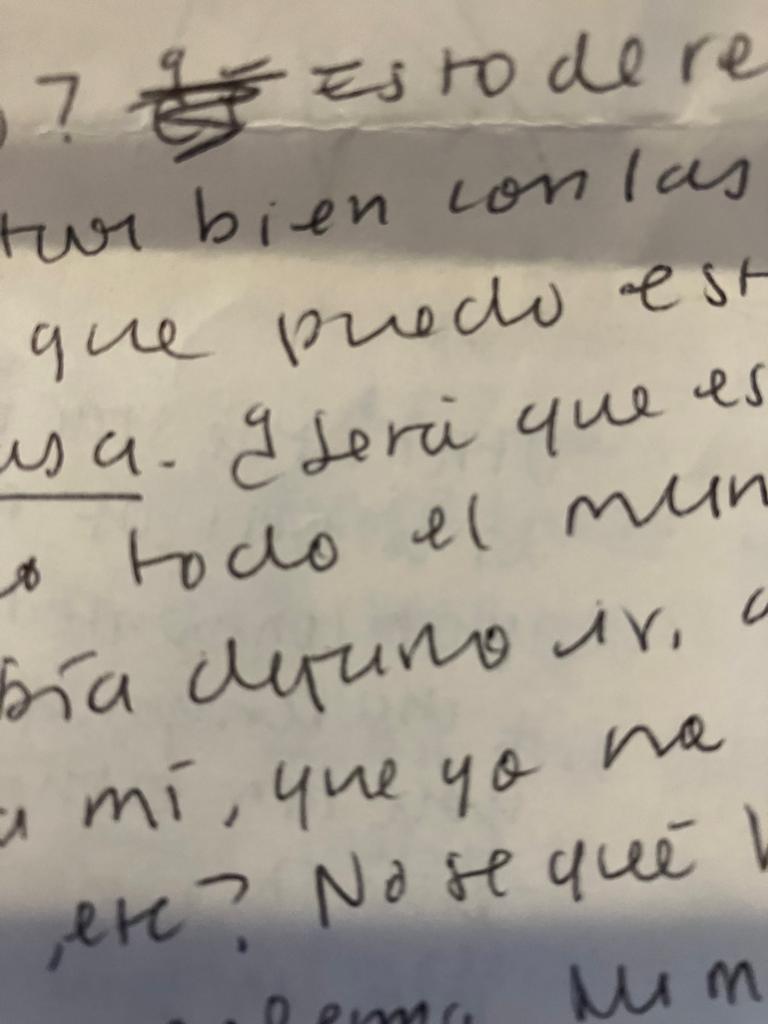 ? Esto de re
bien con las
que puedo est
usa. ¿será que es
todo el mun
bía dejarno ir.
a mí, que yo no
, etc? No se qué